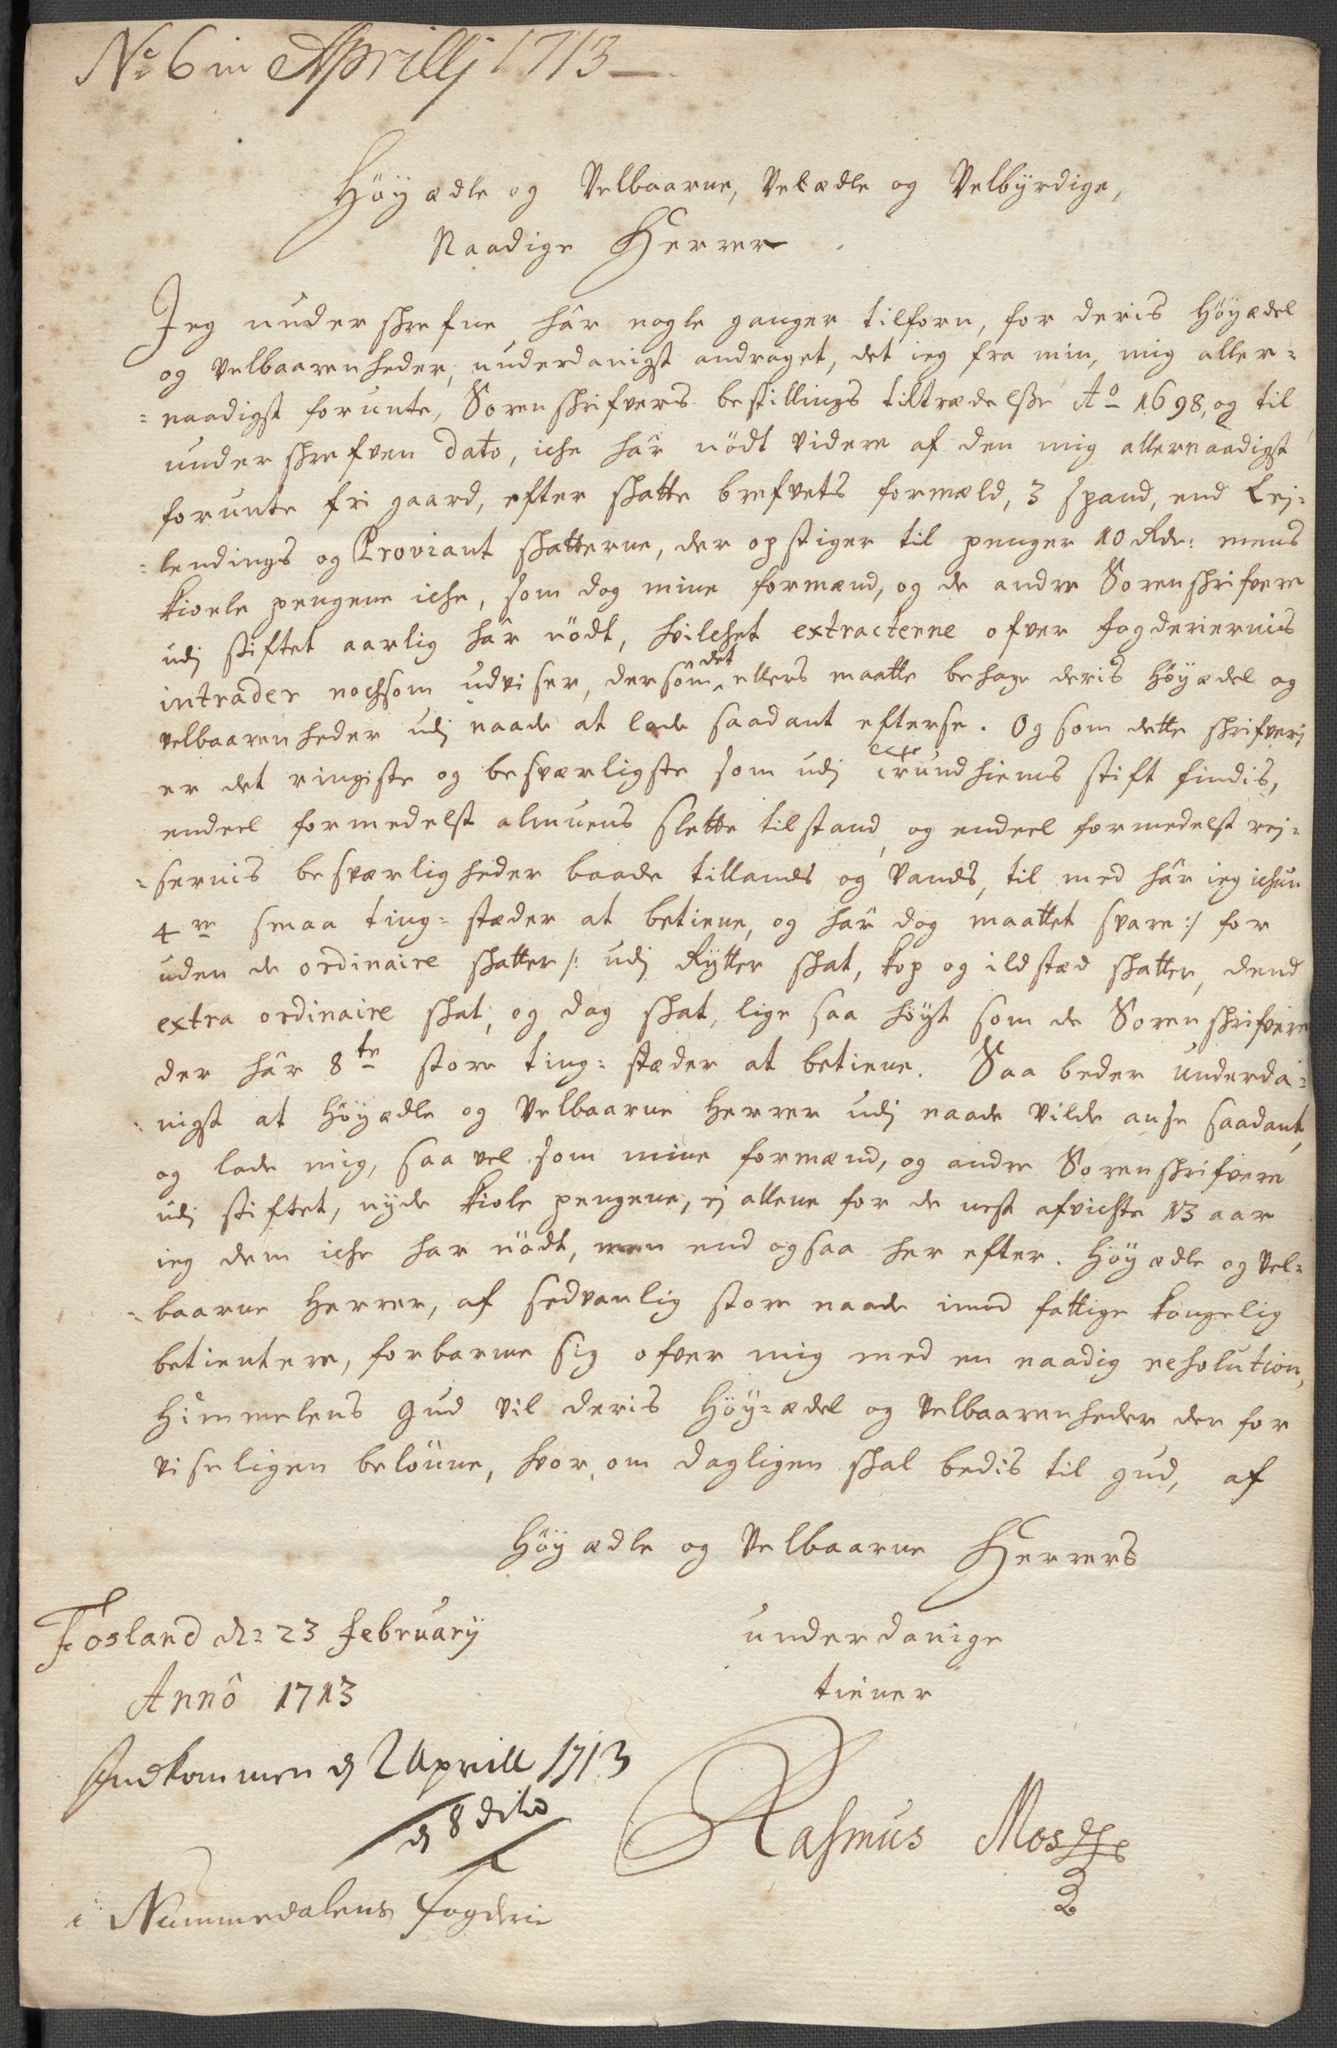 No 6 in Aprillj 1713
Höÿædle og Velbaarne, Velædle og Velbÿrdige,
Naadige Herrer
Jeg underskrefne hâr nogle ganger tilforn, for deris Höÿædel
og velbaarenheder, underdanigst andraget, det ieg fra min, mig aller=
=naadigst forunte, Sorenskrifvers bestillings tiltrædelsse Ao 1698, og til
underskrefven dato, iche hâr nödt videre af den mig allernaadigst
forunte fri gaard, efter skatte brefvets formæld, 3 spand, end Lej=
=lendings og Proviant skatterne, der opstiger til penger 10 Rdr: mens
kiole pengene iche, som dog mine formænd, og de andre Sorenskrifvere
udj stiftet aarlig hâr nödt, hvilchet extracterne ofver fogderiernis
intrader nochsom udviser, dersom det ellers maatte behage deris Höÿædel og
velbaarenheder udj naade at lade saadant efterse. Og som dette skrifverj
er det ringiste og besværligste som udj Trundhiems stift findis,
endeel formedelst almuens slette tilstand, og endeel formedelst rej=
=sernis besværligheder baade tillands og vands, til med hâr ieg ichun
4re smaa ting=stæder at betiene, og hâr dog maattet svare :/ for
uden de ordinaire skatter /: udj Rÿtter skat, kop og ildstæd skatter, dend
extra ordinaire skat, og dag skat, lige saa höÿt som de Sorenskrifvere
der hâr 8te store ting=stæder at betiene. Saa beder underda=
=nigst at Höÿædle og Velbaarne Herrer udj naade vilde anse saadant,
og lade mig, saa vel som mine formænd, og andre Sorenskrifvere
udj stiftet, nÿde kiole pengene, ej allene for de nest afvichte 13 aar
ieg dem iche har nödt, men end ogsaa her efter. Höÿædle og Vel=
=baarne Herrer, af sedvanlig store naade imod fattige kongelig
betientere, forbarme sig ofver mig med en naadig resolution,
Himmelens Gud vil deris Höÿ=ædel og Velbaarenheder der for
viseligen belönne, hvor om dagligen skal bedis til gud, af
Höÿædle og Velbaarne Herrers
Fosland dn: 23 februarÿ
underdanige
Annô 1713
tiener
Indkommen d 2 Aprill 1713
d 8 dito
Rasmus Mos
i Nummedalens fogderie